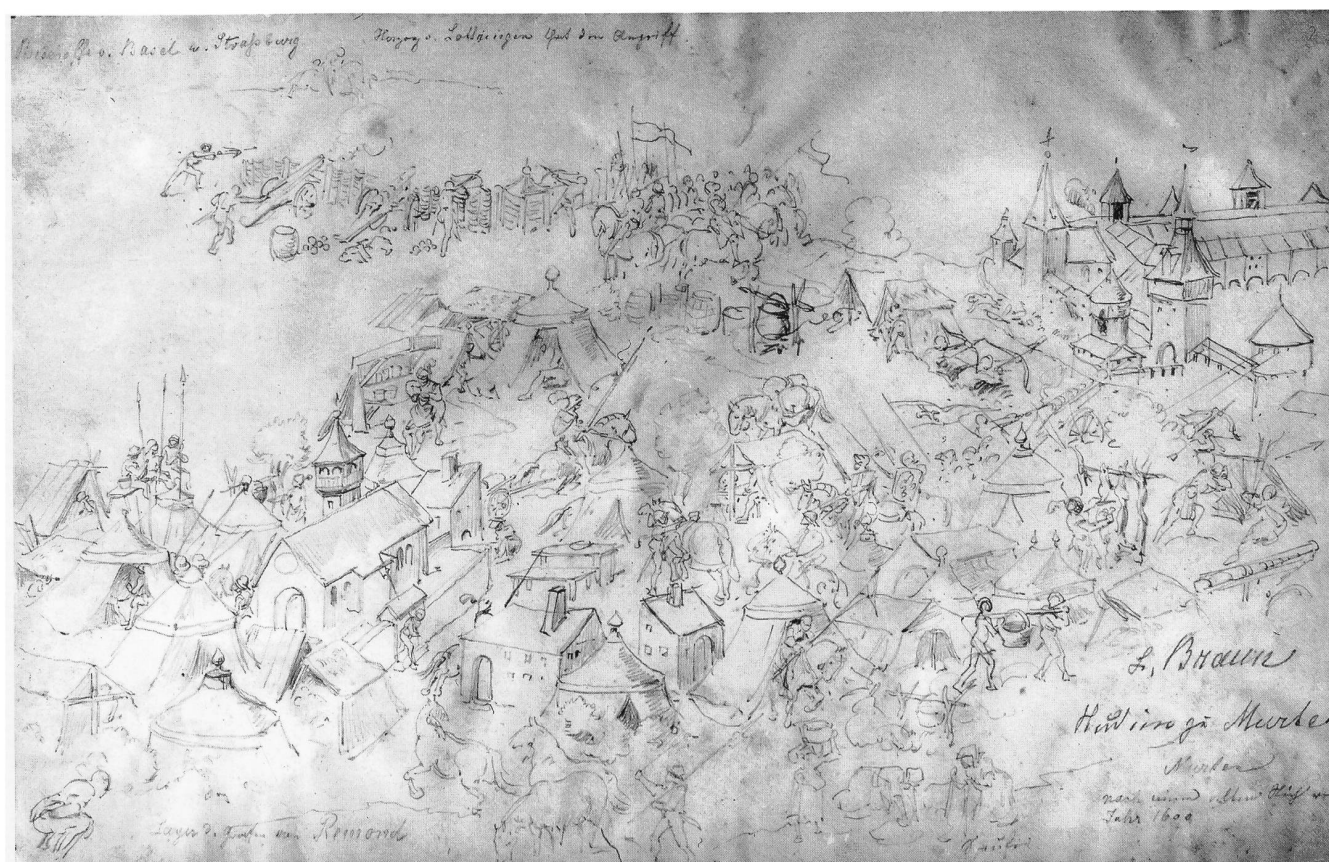 Bischöffe v. Basel u. Straßburg
Herzog v. Lothringen thut den Angriff.
L. Braun
Studien zu Murten
Murten
nach einem alten Stich vom
Jahr 1609
Lager d. Grafen von Romond